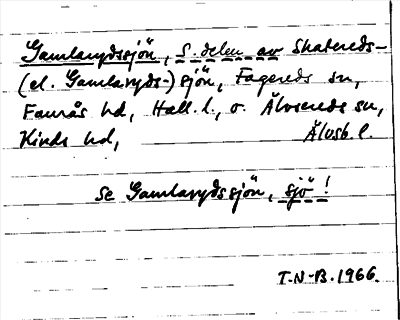 Gamlarydssjön, S. delen av Skatereds-
(el. Gamlaryds-) sjön, Fagereds sn,
Faurås hd, Hall. l., o. Älvsereds sn,
Kinds hd, Älvsb. l.
Se Gamlarydssjön, sjö!
T-N-B. 1966.